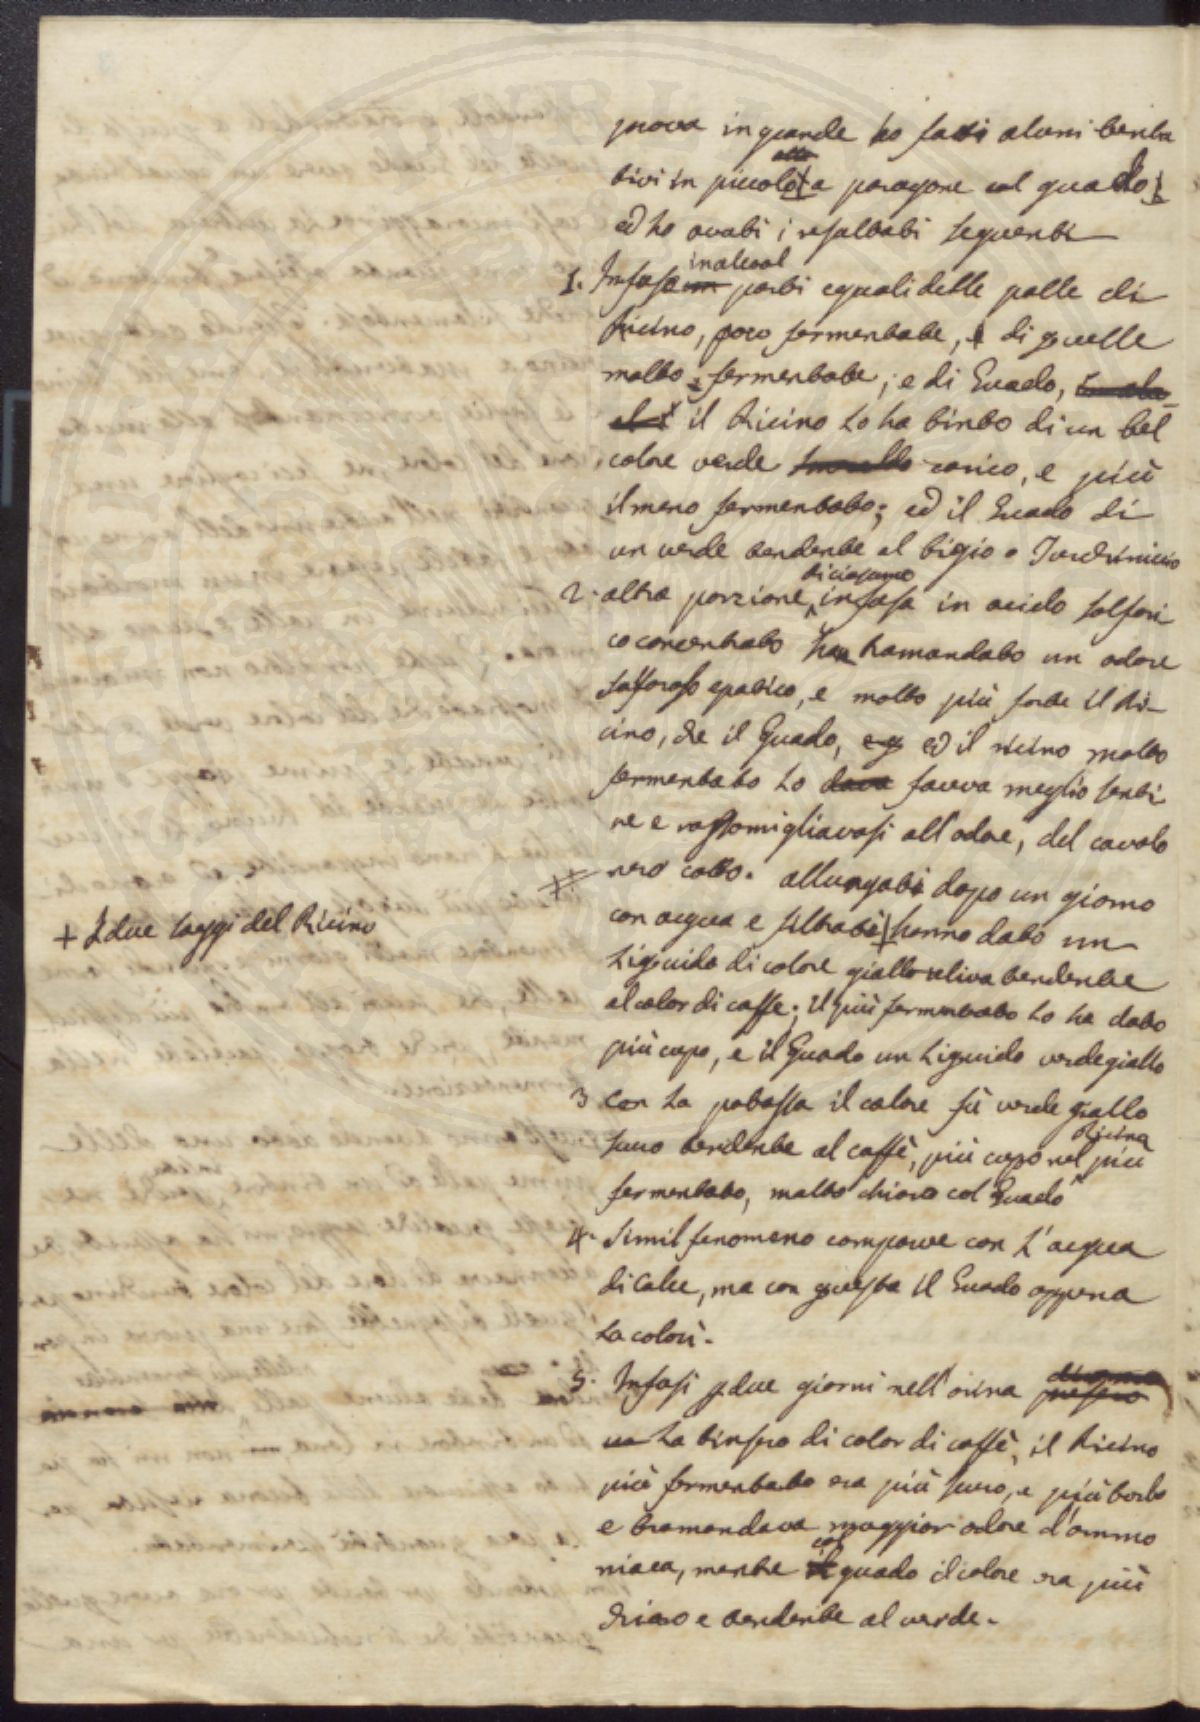 prova in grande ho fatti alcuni tenta
tivi in piccolo, a paragone col guado;
ed ho avuti i resultati seguenti
1. Infuse in alcool parti eguali delle palle di
Ricino, poco fermentate, e di quelle
molto fermentate; e di Guado,
il Ricino lo ha tinto di un bel
colore verde smeraldo carico, e più
il meno fermentato; ed il Guado di
un verde tendente al bigio o
2. altra porzione, infusa in acido solfori
co concentrato han tramandato un odore
solforoso epatico, e molto più forte il Ri-
cino, che il Guado, ed il ricino molto
fermentato lo dava faceva meglio senti
re e rassomigliavasi all'odore, del cavolo
nero cotto. allungati dopo un giorno
+ I due saggi del Ricino
con acqua e filtrati + hanno dato un
Liquido di colore giallo oliva tendente
al color di caffe; Il più fermentato lo ha dato
più cupo, e il Guado un Liquido verde giallo
3 Con La potassa il colore fù verde giallo
scuro tendente al caffè, più cupo nel Ricino più
fermentato, molto chiaro col Guado
4. Simil fenomeno comparve con L'acqua
di Calce, ma con questa il Guado appena
La colorì.
5. Infusi p due giorni nell'orina
La tinsero di color di caffè, il Ricino
più fermentato era più scuro, e più torbo
e tramandava maggior odore d'ammo
niaca, mentre col guado il colore era più
chiaro e tendente al verde.